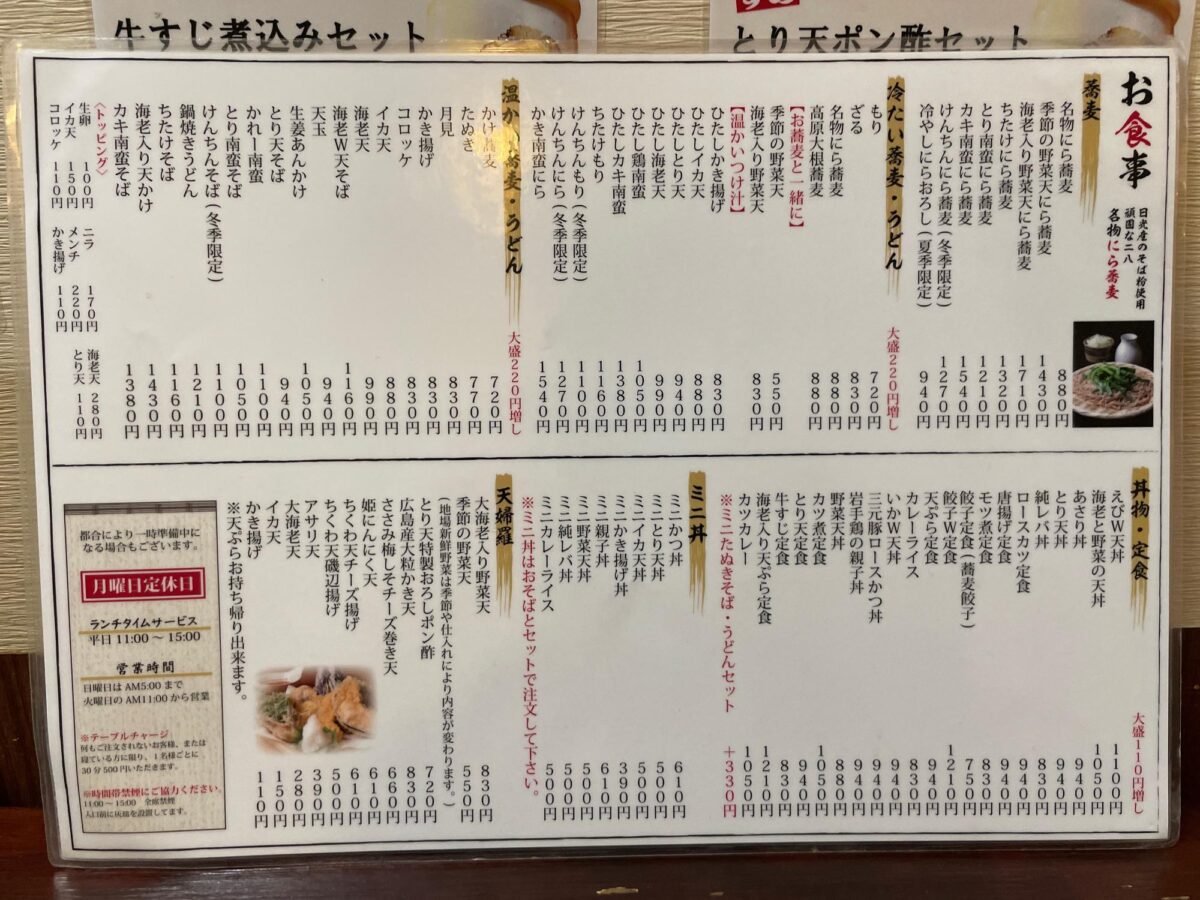 牛すじ煮込みセット
とり天ポン酢セット
お食事
日光産のそば粉使用
頑固な二八
名物にら蕎麦
蕎麦
名物にら蕎麦 880円
季節の野菜天にら蕎麦 1430円
海老入り野菜天にら蕎麦 1710円
ちたけにら蕎麦 1320円
とり天にら蕎麦 1210円
カキ南蛮にら蕎麦 1540円
けんちんにら蕎麦(冬季限定) 1270円
冷やしにらおろし(夏季限定) 940円
冷たい蕎麦・うどん 大盛220円増し
もり 720円
ざる 830円
名物にら蕎麦 880円
高原大根蕎麦 880円
【お蕎麦と一緒に】
季節の野菜天 550円
海老入り野菜天 830円
【温かいつけ汁】
ひたしかき揚げ 830円
ひたしイカ天 880円
ひたしとり天 940円
ひたし海老天 990円
ひたし鶏南蛮 1050円
ひたしカキ南蛮 1380円
ちたけもり 1160円
けんちんもり(冬季限定) 1100円
けんちんにら(冬季限定) 1270円
かき南蛮にら 1540円
温か 蕎麦・うどん 大盛220円増し
かけ蕎麦 720円
たぬき 770円
月見 830円
かき揚げ 830円
コロッケ 830円
イカ天 880円
海老天 990円
海老W天そば 1160円
天玉 940円
生姜あんかけ 1050円
とり天そば 940円
かれー南蛮 1100円
とり南蛮そば 1050円
けんちんそば(冬季限定) 1100円
鍋焼きうどん 1210円
ちたけそば 1160円
海老入り天かけ 1430円
カキ南蛮そば 1380円
〈トッピング〉
生卵 100円 ニラ 170円 海老天 280円
イカ天 150円 メンチ 220円 とり天 110円
コロッケ 110円 かき揚げ 110円
丼物・定食 大盛110円増し
えびW天丼 1100円
海老と野菜の天丼 1050円
あさり丼 940円
とり天丼 940円
純レバ丼 830円
ロースカツ定食 940円
唐揚げ定食 940円
モツ煮定食 830円
餃子定食(蕎麦餃子) 750円
餃子W定食 1210円
天ぷら定食 940円
カレーライス 830円
いかW天丼 940円
三元豚ロースかつ丼 940円
岩手鶏の親子丼 940円
野菜天丼 880円
カツ煮定食 1050円
とり天定食 940円
牛すじ定食 940円
海老入り天ぷら定食 1210円
カツカレー 1050円
※ミニたぬきそば・うどんセット +330円
ミニ丼
ミニかつ丼 610円
ミニとり天丼 500円
ミニイカ天丼 500円
ミニかき揚げ丼 390円
ミニ親子丼 610円
ミニ野菜天丼 500円
ミニ純レバ丼 500円
ミニカレーライス 500円
※ミニ丼はおそばとセットで注文して下さい。
天婦羅
大海老入り野菜天 830円
季節の野菜天 550円
(地場新鮮野菜は季節や仕入れにより内容が変わります。)
とり天特製おろしポン酢 720円
広島産大粒かき天 830円
ささみ梅しそチーズ巻き天 660円
姫にんにく天 610円
ちくわ天チーズ揚げ 610円
ちくわ天磯辺揚げ 500円
アサリ天 390円
大海老天 280円
イカ天 150円
かき揚げ 110円
※天ぷらお持ち帰り出来ます。
都合により一時準備中に
なる場合もございます。
月曜日定休日
ランチタイムサービス
平日 11:00〜15:00
営業時間
日曜日は AM5:00 まで
火曜日の AM11:00 から営業
※テーブルチャージ
何もご注文されないお客様、または
寝ている方に限り、1名様ごとに
30分500円いただきます。
※時間帯禁煙にご協力ください。
11:00〜15:00 全席禁煙
入口前に灰皿を設置してます。